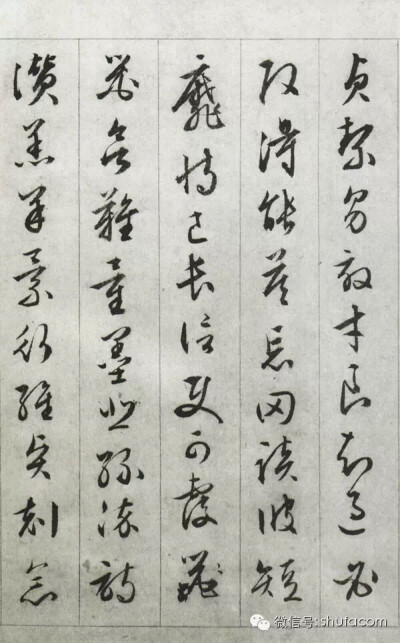 貞絜男效才良知過必
改得能莫忘罔談彼短
靡恃己長信使可覆
器欲難量墨悲絲染詩
讚羔羊景行維賢剋念
微信号:shufacom